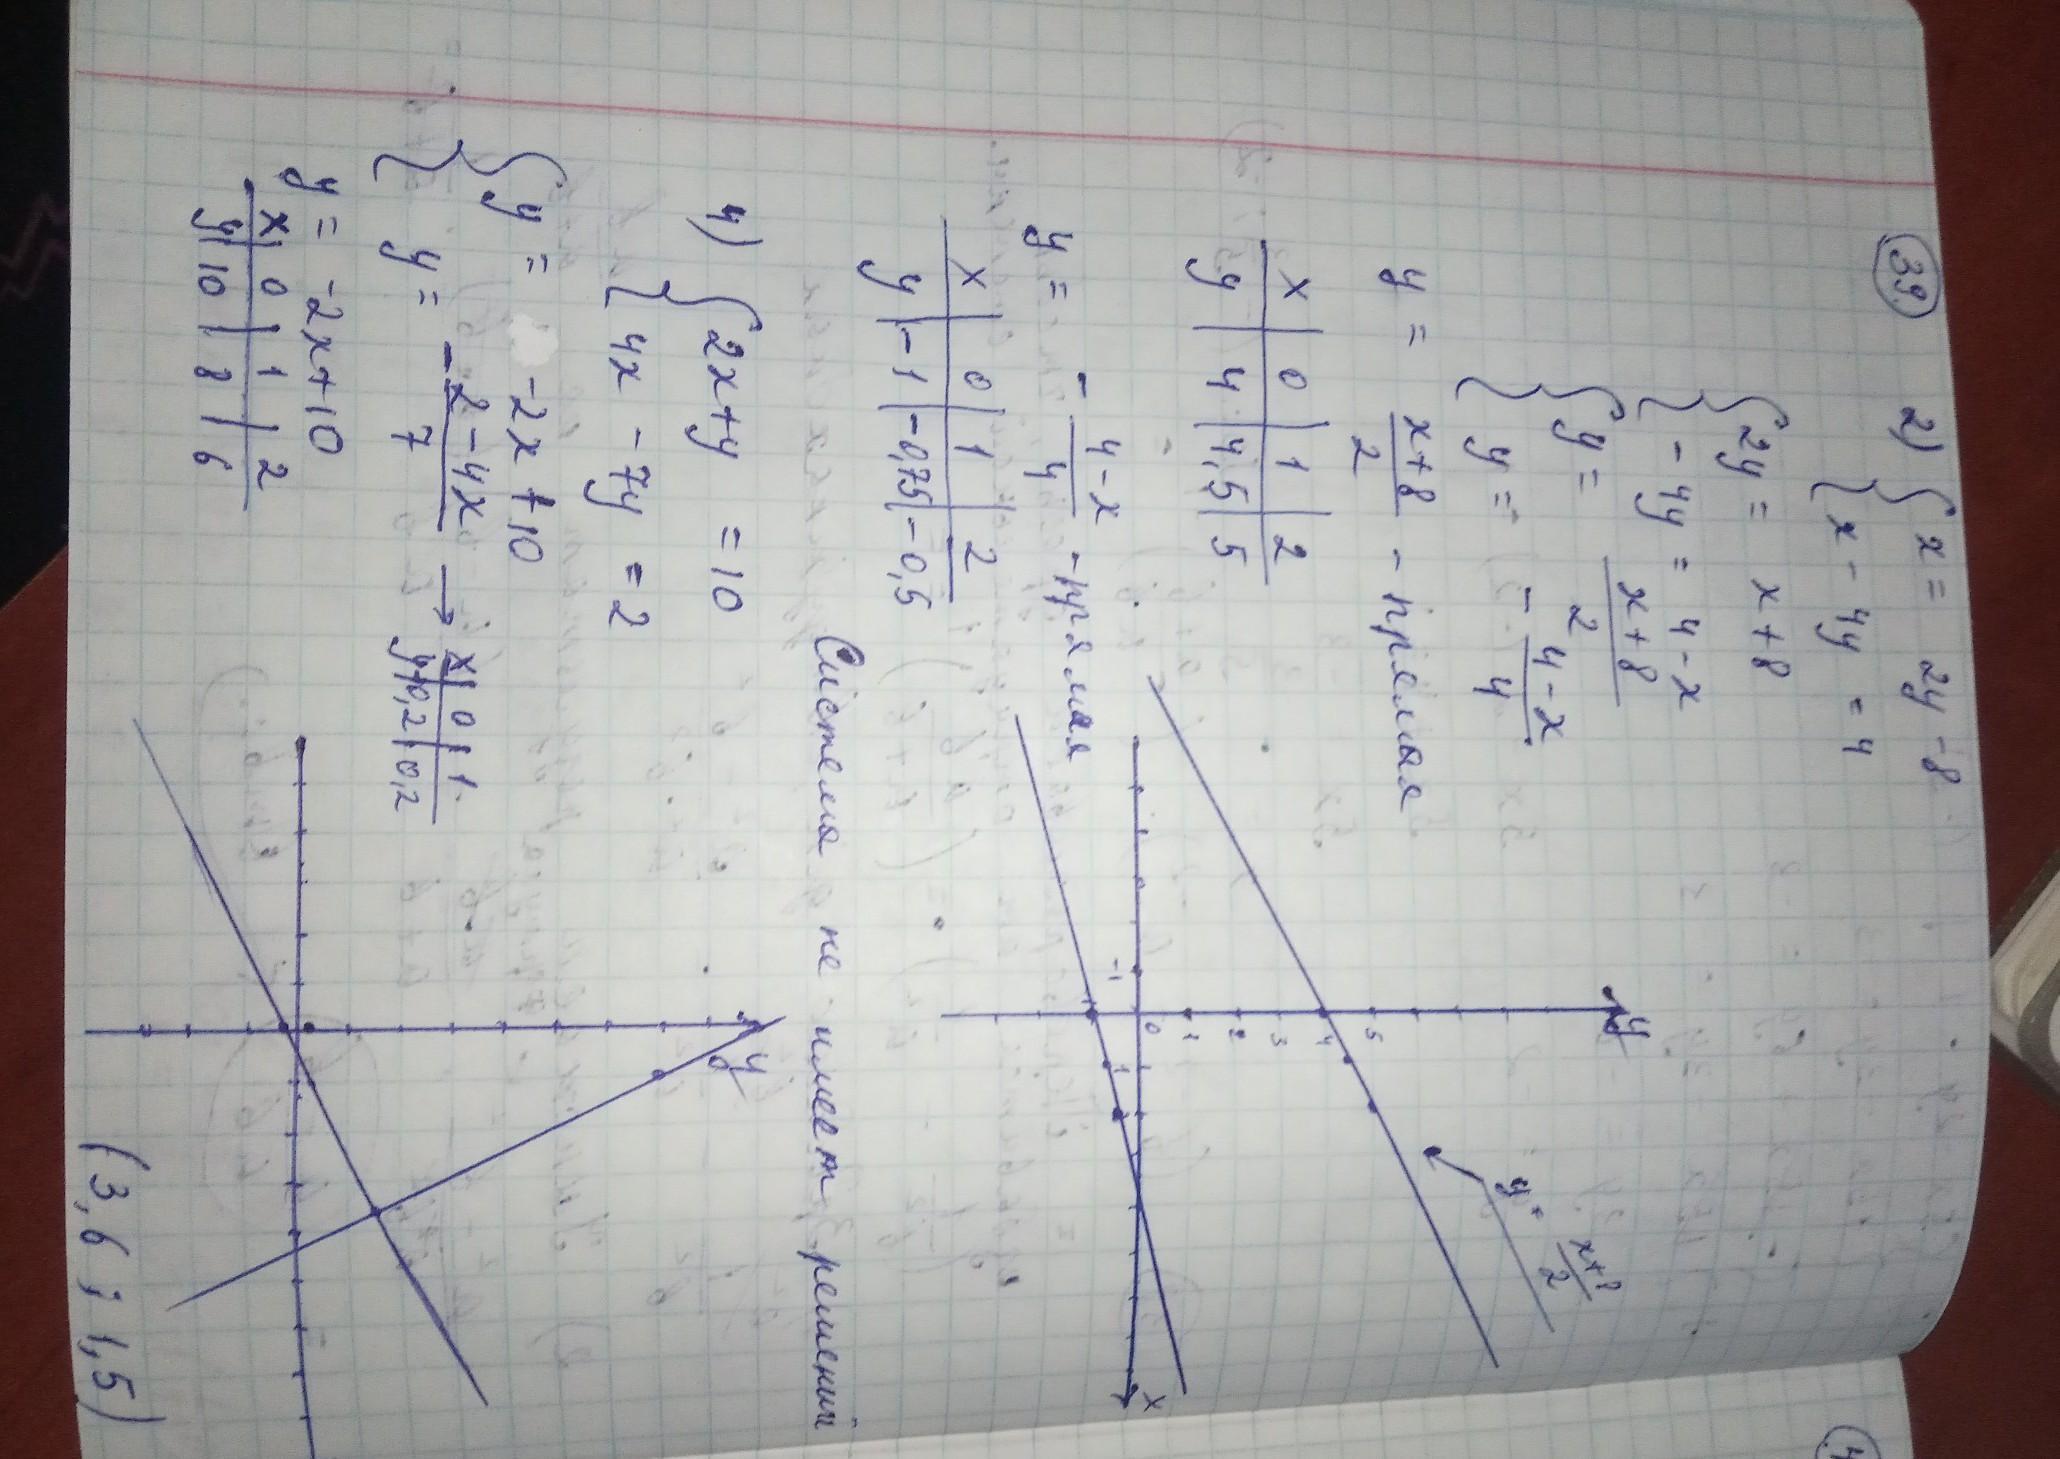 39. 2) { x = 2y - 8
x - 4y = 4
{ 2y = x + 8
- 4y = 4 - x
{ y = x+8/2
y = - 4-x/4
y = x+8/2 - прямая
x | 0 | 1 | 2
y | 4 | 4,5 | 5
y = - 4-x/4 - прямая
x | 0 | 1 | 2
y | -1 | -0,75 | -0,5
y
5
4
3
2
1
0
-1
1
x
y = x+8/2
Система не имеет решений
4) { 2x+y = 10
4x - 7y = 2
{ y = -2x + 10
y = - 2-4x/7 → x | 0 | 1
y | -0,2 | 0,2
y = -2x+10
x | 0 | 1 | 2
y | 10 | 8 | 6
y
(3,6 ; 1,5)